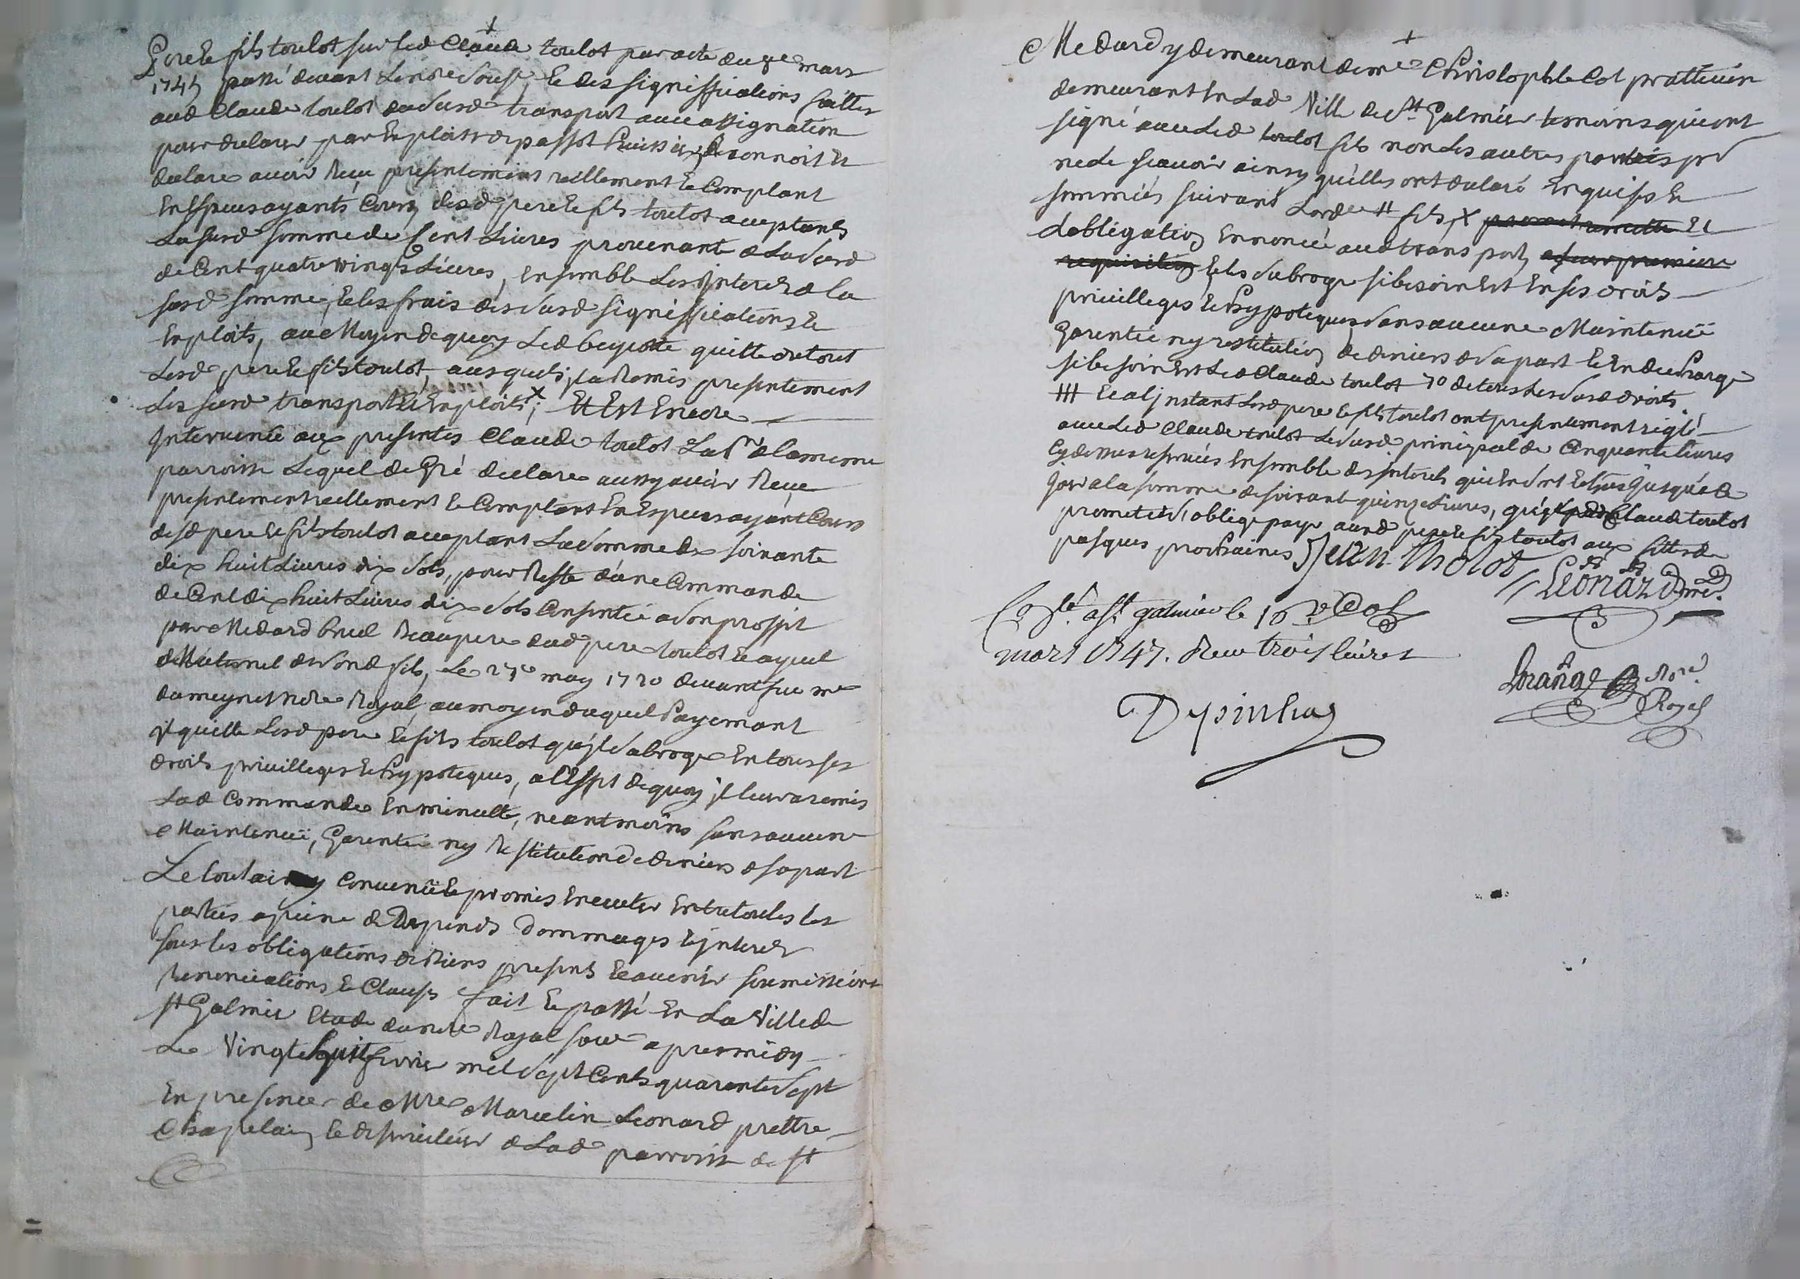 Pere et fils toulot sur led Claude toulot par acte du 7e mars
1745 passé devant le nore soussé, et des signiffications faittes
aud Claude toulot dud susd transport avec assignation
pour declarer par Exploits de passot huissier, reconnoit et
declare avoir Reçu presentement reellement et Comptant
En Especes ayants Cours desd pere et fils toulot acceptants
La susd somme de Cent Livres provenante de la susd
de Cent quatre vingts Livres, ensemble Les Interets de la
susd somme, et les frais des susd signiffications et
Exploits, au Moyen de quoy Led quitte du tout
Lesd pere et fils toulot, ausquels il a Remis presentement
Les susd transports et Exploits x; Et Est Encore
Intervenu aux presentes Claude toulot de la meme
parroisse Lequel de Gré declare aussy avoir Reçu
presentement reellement et Comptant En Especes ayant Cours
desd pere et fils toulot acceptant La somme de soixante
dix huit Livres dix sols, pour Reste d'une Commande
de Cent dix huit Livres dix sols Consentie a son proffit
par Medard bruel Beaupere dud pere toulot et ayeul
Maternel de sond fils, Le 27e may 1720 devant feu me
dumeynet nore Royal au moyen duquel Payement
il quitte Lesd pere et fils toulot qu'il subroge En tous ses
droits privilleges et hypoteques, a l'Effet de quoy il leur a remis
Lad Commande En minutte, neantmoins sans aucune
Maintenüe, Garentie ny Restitution de deniers de sa part
Le tout ainsy Convenu et promis Executer Entre toutes les
parties a peine de Depends Dommages et jnterets
sous les obligations de Biens presents et avenir soumissions
Renonciations et Clauses fait et passé En La Ville de
st Galmier Etude du nore Royal sousé apres midy
Le Vingt huit fevrier mil sept Cents quarante sept
En presence de Mre Marcelin Leonard prettre
Chapelain et de Lad parroisse de st
Medard y demeurant et de me Christophle Cot pratticien
demeurant En Lad Ville de St Galmier temoins qui ont
signé avec Led toulot fils non les autres parties pr
ne le scavoir ainsy qu'elles ont declaré Enquises et
sommées suivant Lorde # fils x promet remettre Et
dobligation Ennoncé aud transport, a leur premiere
requisition Et les subroge si besoin Est En ses droits
privilleges et hypoteques sans aucune Maintenüe
Garentie ny restitution de deniers de sa part Et En decharge
si besoin Est Led Claude toulot de tous Les susd droits
### Et a l'jnstant Lesd pere et fils toulot ont presentement reglé
avec Led Claude toulot Le susd principal de Cinquante livres
Cy dessus reservés Ensemble des jnterets qui En sont Echus jusqu'a ce
jour a la somme de soixant quinze Livres, que led Claude toulot
promet et s'oblige payer auxd pere et fils toulot aux fettes de
pasques prochaines Jean tholot
Leonard
Cot
Conlé a St galmier le 10e
mars 1747. Reçu trois livres
Depinhac
Loranges Nore
Royal